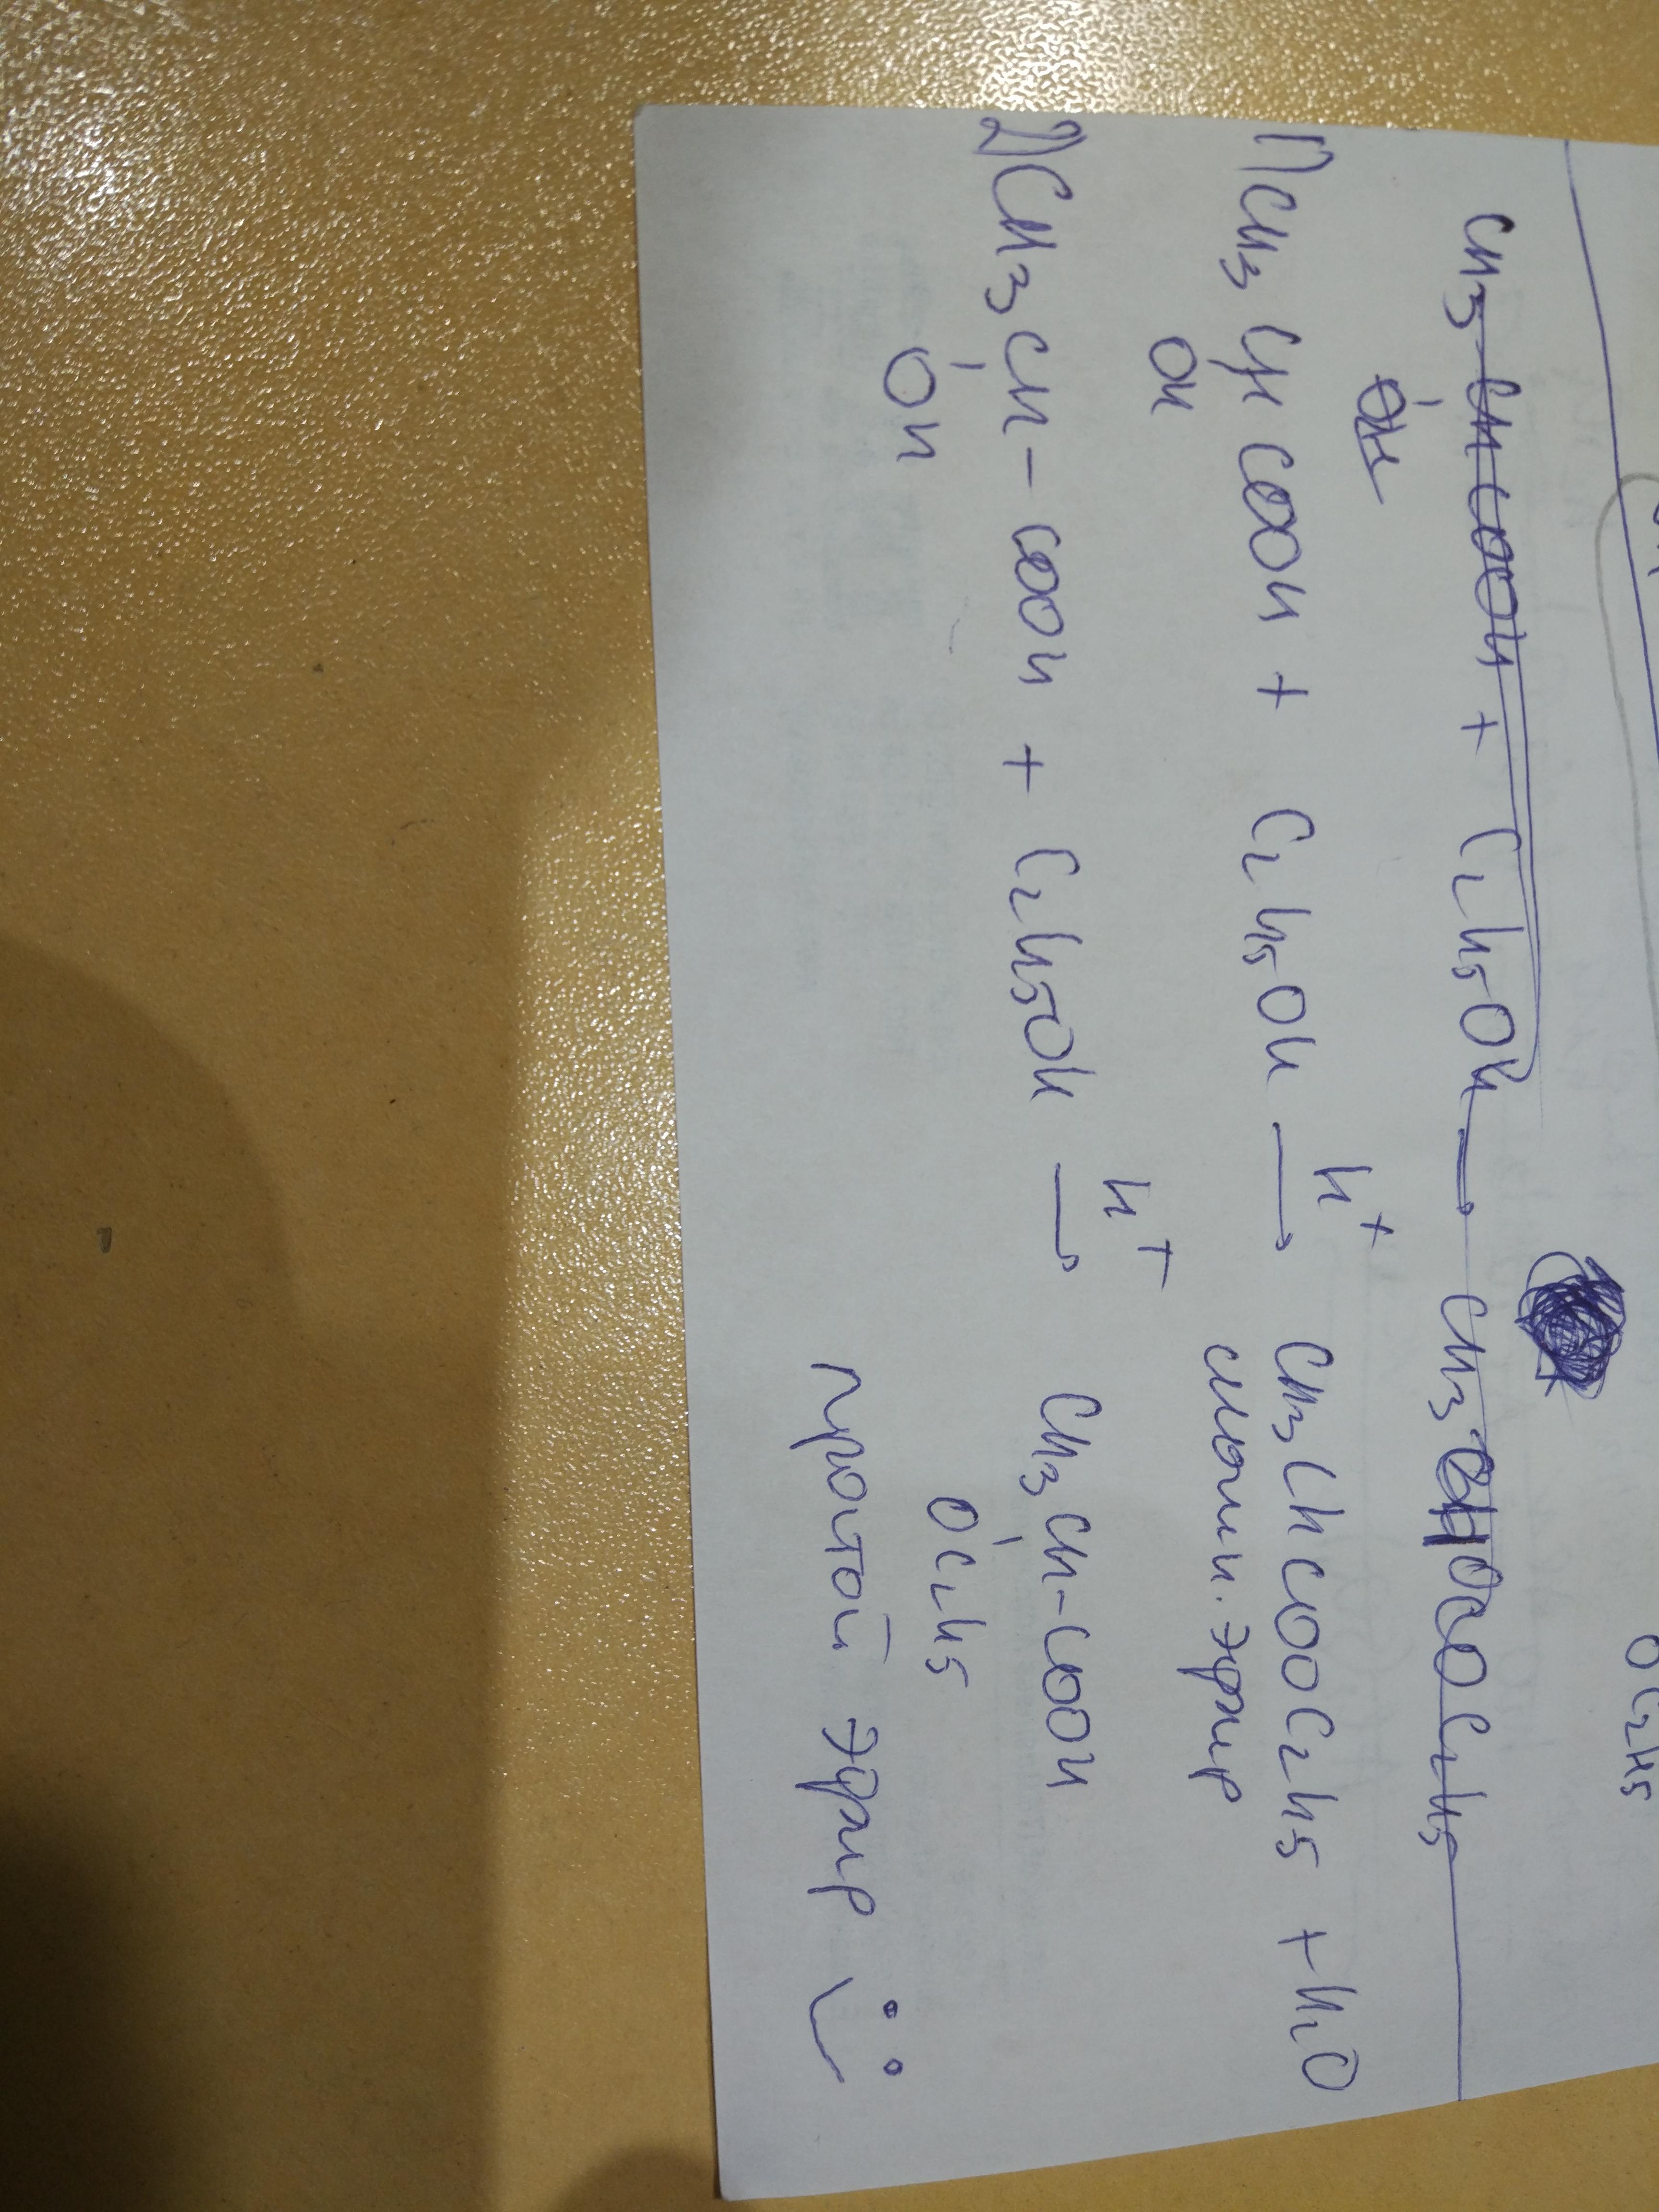 OC2H5
CH3CHCOOH + C2H5OH → CH3CHOCOC2H5
OH
H+
1) CH3CHCOOH + C2H5OH → CH3CHCOOC2H5 + H2O
OH
сложн. эфир
H+
2) CH3CH-COOH + C2H5OH → CH3CH-COOH
OH
OC2H5
простой эфир